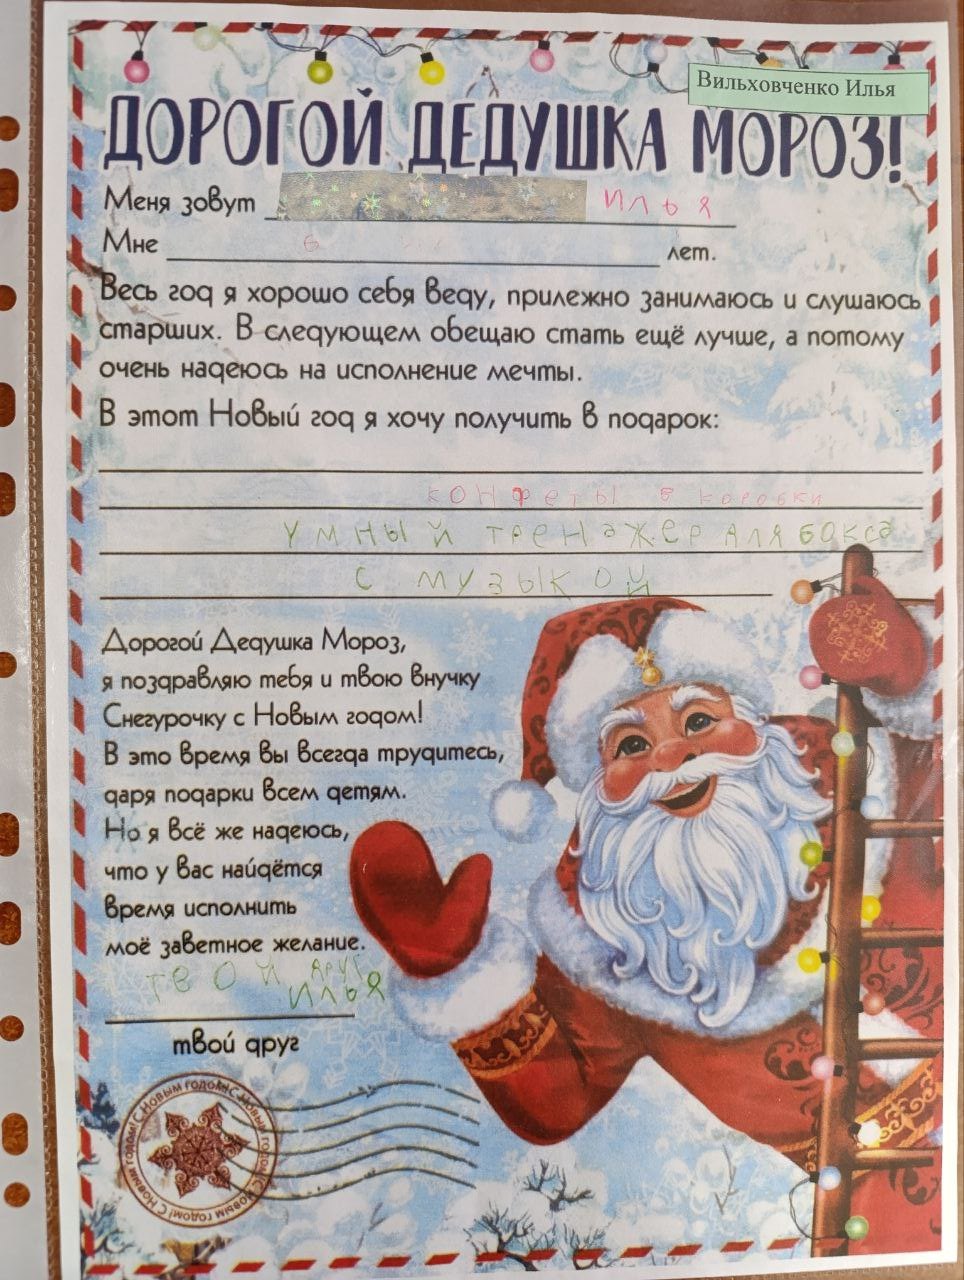 Вильховченко Илья
ДОРОГОЙ ДЕДУШКА МОРОЗ!
Меня зовут ИЛЬЯ
Мне 6 лет.
Весь год я хорошо себя веду, прилежно занимаюсь и слушаюсь
старших. В следующем обещаю стать ещё лучше, а потому
очень надеюсь на исполнение мечты.
В этот Новый год я хочу получить в подарок:
КОНФЕТЫ В КОРОБКИ
УМНЫЙ ТРЕНАЖЕР ДЛЯ БОКСА
С МУЗЫКОЙ
Дорогой Дедушка Мороз,
я поздравляю тебя и твою внучку
Снегурочку с Новым годом!
В это время вы всегда трудитесь,
даря подарки всем детям.
Но я всё же надеюсь,
что у вас найдётся
время исполнить
моё заветное желание.
ТВОЙ ДРУГ
ИЛЬЯ
твой друг
С Новым годом! С Новым годом! С Новым годом! С Новым годом!